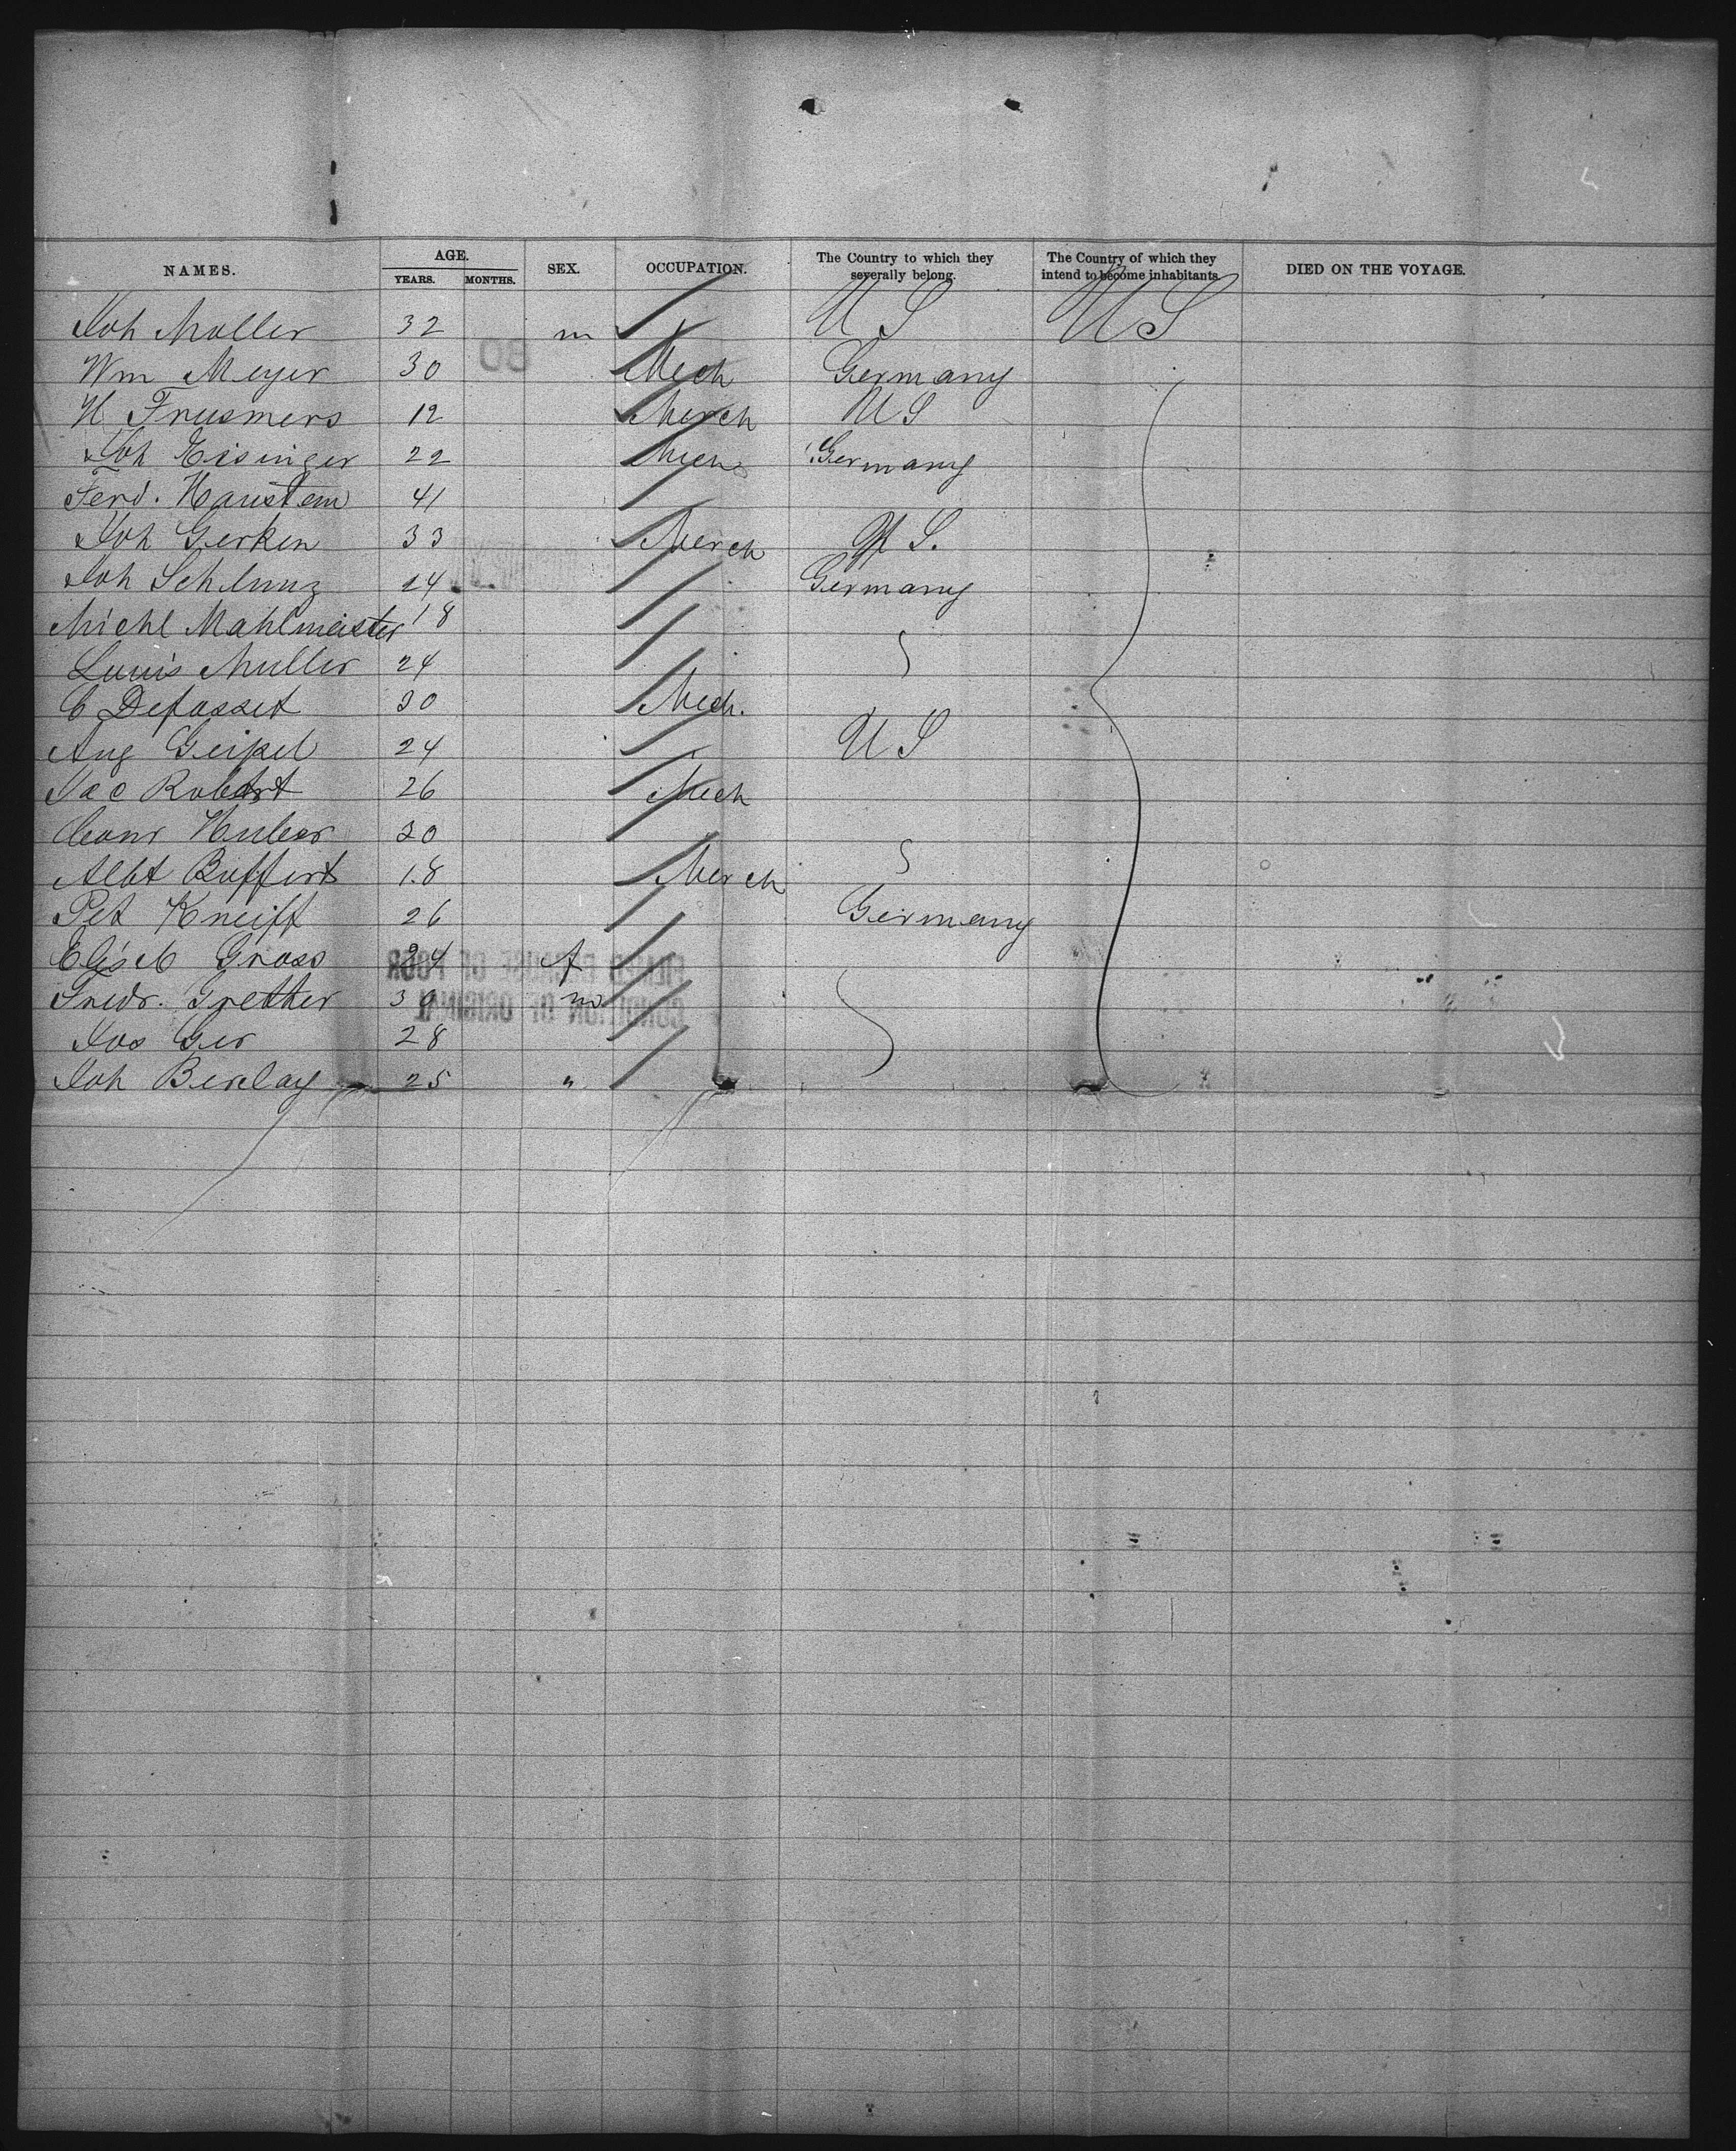 NAMES. AGE. SEX. OCCUPATION. The Country to which they severally belong. The Country of which they intend to become inhabitants DIED ON THE VOYAGE.
YEARS. MONTHS.
Joh Moller 32 m U S U S
Wm Meyer 30 Mech Germany
H Frusmers 12 Merch U S
Joh Eisinger 22 Mech Germany
Ferd. Haustem 41
Joh Gerken 33 Merch U S.
Joh Schlunz 24 Germany
Michl Mahlmeister 18
Louis Muller 24
C Defosset 30 Mech.
Aug Geipel 24 U S
Jac Robert 26 Mech
Huber 20
Albt Buffert 18 Merch
Pet Kneiff 26 Germany
Elis Gross 24 f
Fredr. Grether 30 m
Jos Ger 28
Joh Berclay 25 "
FILMED BECAUSE OF POOR
CONDITION OF ORIGINAL
80